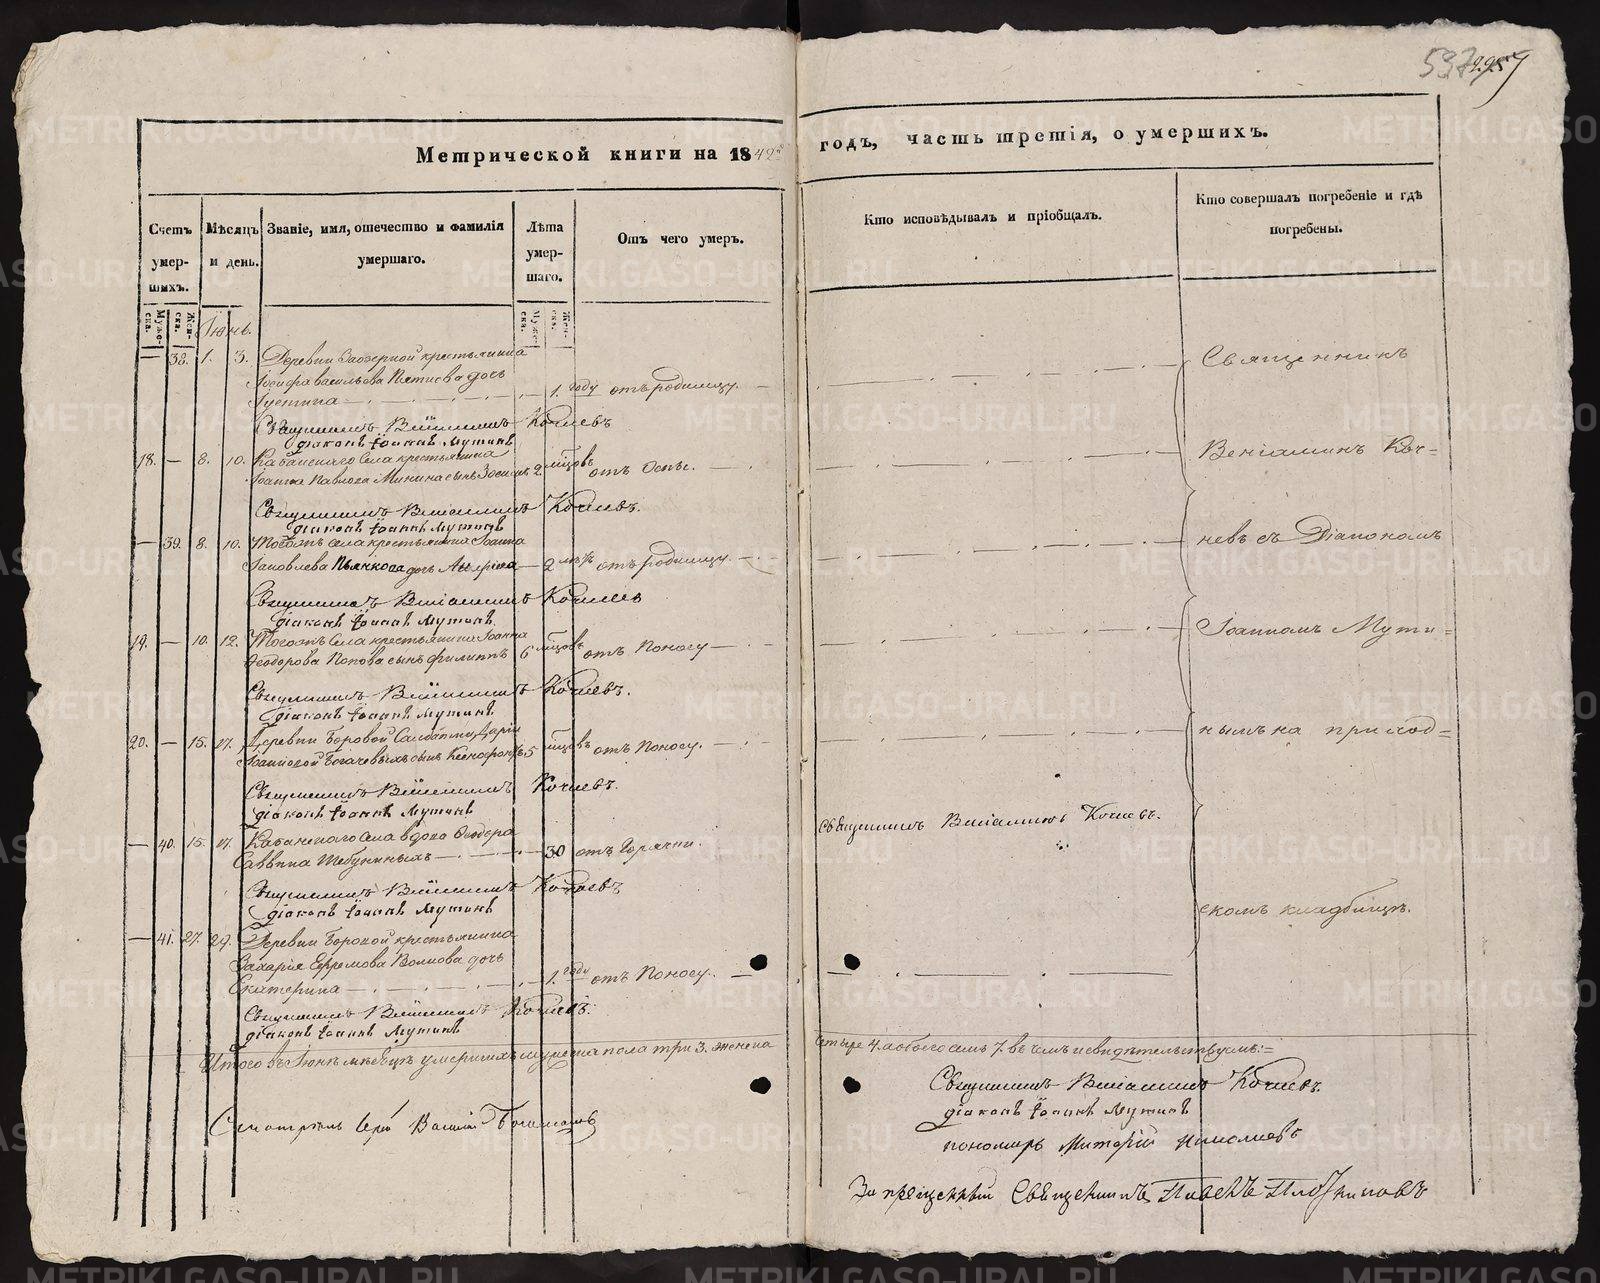 537
Метрической книги на 1842й
годъ, часть третія, о умершихъ.
Счетъ умер-шихъ.
Мѣсяцъ и день.
Званіе, имя, отечество и фамилія умершаго.
Лѣта умер-шаго.
Отъ чего умеръ.
Кто исповѣдывалъ и пріобщалъ.
Кто совершалъ погребеніе и гдѣ погребены.
Муже-ска.
Жен-ска.
Муже-ска.
Жен-ска.
Іюнь.
— 38. 1. 3. Деревни Заозерной крестьянина
Іосифа Васильева Пятиева дочь
Іустина — 1. году отъ родимцу.
Священникъ Веніаминъ Кочневъ
діаконъ Іоаннъ Мутинъ
18. — 8. 10. Кабанскаго села крестьянина
Іоанна Павлова Минина сынъ Зосима 2 мѣсцовъ отъ Оспы.
Священникъ Веніаминъ Кочневъ.
діаконъ Іоаннъ Мутинъ
— 39. 8. 10. Тогожъ села крестьянина Іоанна
Іаковлева Пьянкова дочь — 2 отъ родимцу.
Священникъ Веніаминъ Кочневъ
діаконъ Іоаннъ Мутинъ.
19. — 10. 12. Тогожъ села крестьянина Іоанна
Феодорова Попова сынъ Филиппъ 6 мѣсцовъ отъ Поносу
Священникъ Веніаминъ Кочневъ.
діаконъ Іоаннъ Мутинъ.
20. — 15. 17. Деревни Боровой Солдатки Даріи
Іоанновой Богачевыхъ сынъ Ксенофонтъ 5 мѣсцовъ отъ Поносу.
Священникъ Веніаминъ Кочневъ.
діаконъ Іоаннъ Мутинъ
— 40. 15. 17. Кабанскаго села вдова Феодора
Саввина Шабунинахъ — 30 отъ Горячки.
Священникъ Веніаминъ Кочневъ.
Священникъ Веніаминъ Кочневъ
діаконъ Іоаннъ Мутинъ
— 41. 27. 29. Деревни Боровой крестьянина
Захарія Ефремова Волкова дочь
Екатерина — 1. году отъ Поносу.
Священникъ Веніаминъ Кочневъ.
діаконъ Іоаннъ Мутинъ
Священникъ
Веніаминъ Коч=
невъ съ Діакономъ
Іоанномъ Мути=
нымъ на приход=
скомъ кладбищѣ.
Итого въ Іюнѣ мѣсяцѣ умершихъ мужеска пола три 3. женска четыре 4. а обоего семь 7. въ чемъ и свидѣтельствуемъ:=
Священникъ Веніаминъ Кочневъ.
діаконъ Іоаннъ Мутинъ
пономарь Николаевъ
Запрещенный Священникъ Павелъ Плотниковъ
METRIKI.GASO-URAL.RU